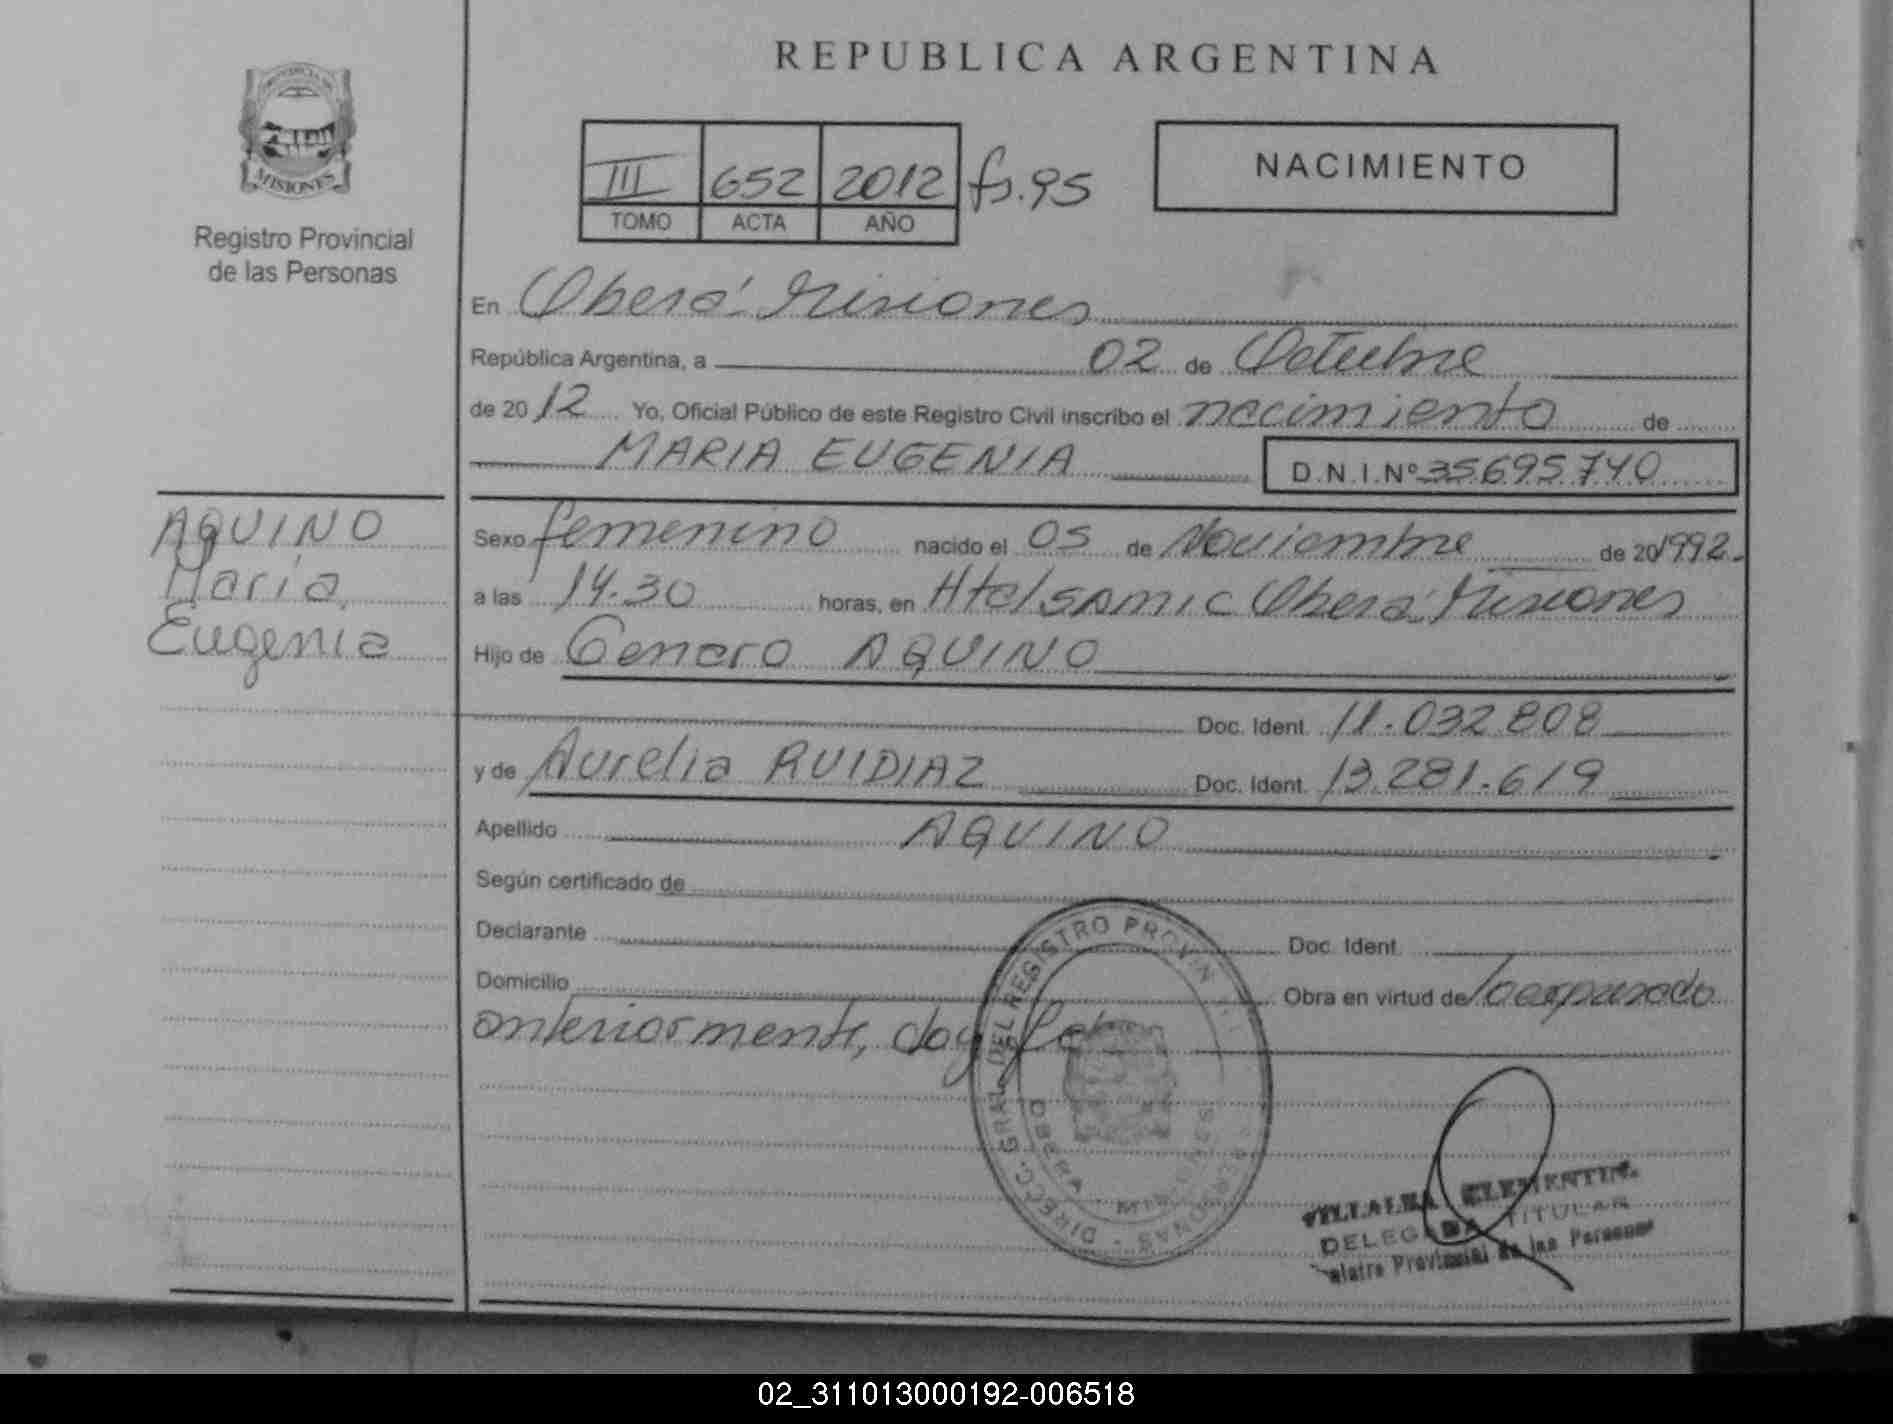 REPUBLICA ARGENTINA
PROVINCIA DE
MISIONES
Registro Provincial
de las Personas
III 652 2012 fs.95
TOMO ACTA AÑO
NACIMIENTO
En Oberá Misiones
República Argentina, a 02 de Octubre
de 20 12 Yo, Oficial Público de este Registro Civil inscribo el nacimiento de
MARIA EUGENIA D.N.I.Nº 35695740
AQUINO
Maria
Eugenia
Sexo femenino nacido el 05 de Noviembre de 20 1992.
a las 14.30 horas, en Htal SAMIC Oberá Misiones
Hijo de Genaro AQUINO
Doc. Ident. 11.032.808
y de Aurelia RUIDIAZ Doc. Ident. 13.281.619
Apellido AQUINO
Según certificado de
Declarante Doc. Ident.
Domicilio Obra en virtud de lo expresado
anteriormente, doy fe
DIRECC. GRAL. DEL REGISTRO PROVIN PERSONAS
OBERA MISIONES
VILLALBA CLEMENTIN
DELEGADA TITULAR
Provincial de las Personas
02_311013000192-006518